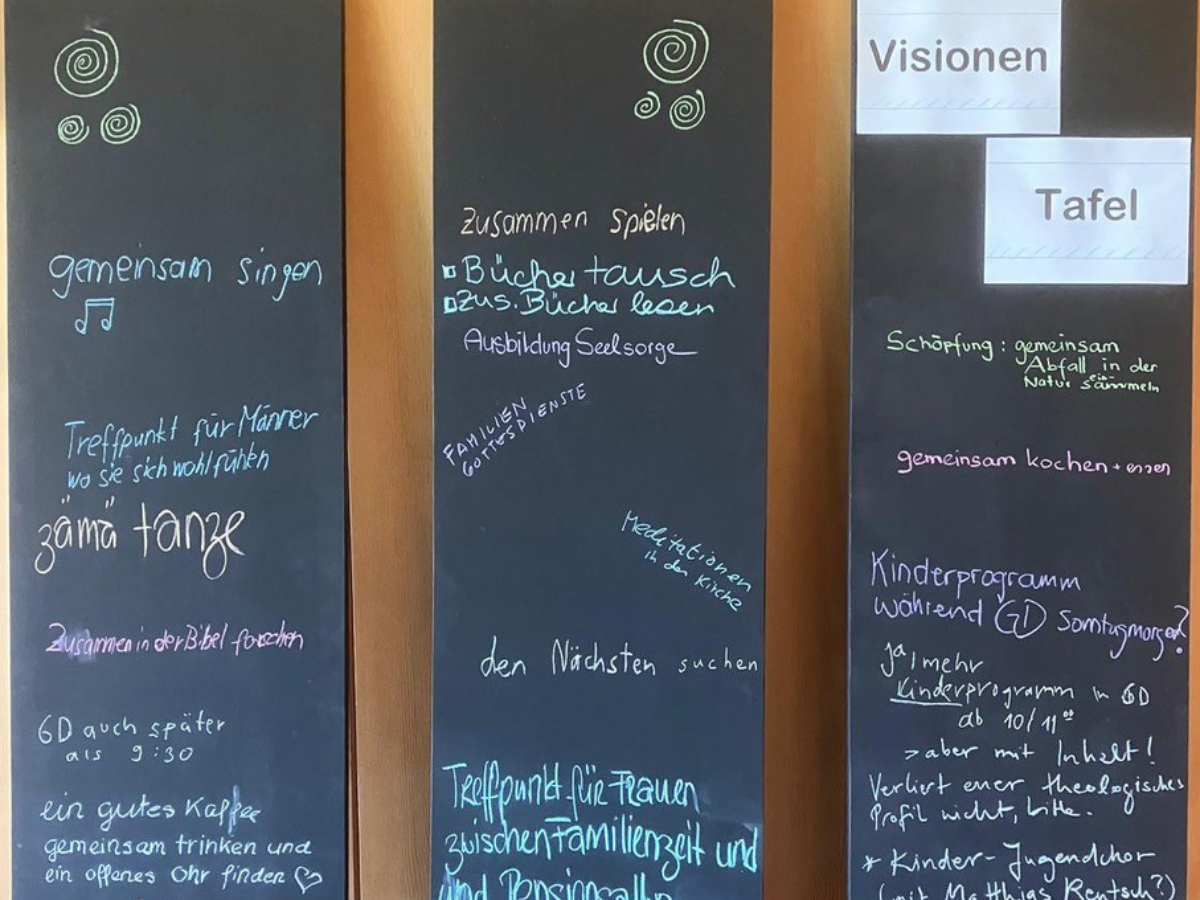 gemeinsam singen
Treffpunkt für Männer
wo sie sich wohl fühlen
zämä tanze
Zusammen in der Bibel forschen
GD auch später
als 9:30
ein gutes Kaffee
gemeinsam trinken und
ein offenes Ohr finden
Zusammen spielen
Büchertausch
Zus. Bücher lesen
Ausbildung Seelsorge
FAMILIEN
GOTTESDIENSTE
Meditationen
in der Kirche
den Nächsten suchen
Treffpunkt für Frauen
zwischen Familienzeit und
und
Visionen
Tafel
Schöpfung: gemeinsam
Abfall in der
Natur ein-
sammeln
gemeinsam kochen + essen
Kinderprogramm
während GD Sonntagmorgen?
ja, mehr
Kinderprogramm in GD
ab 10/11⁰⁰
> aber mit Inhalt!
Verlirt euer theologisches
Profil nicht, bitte.
* Kinder-Jugendchor
(mit Matthias Rentsch?)